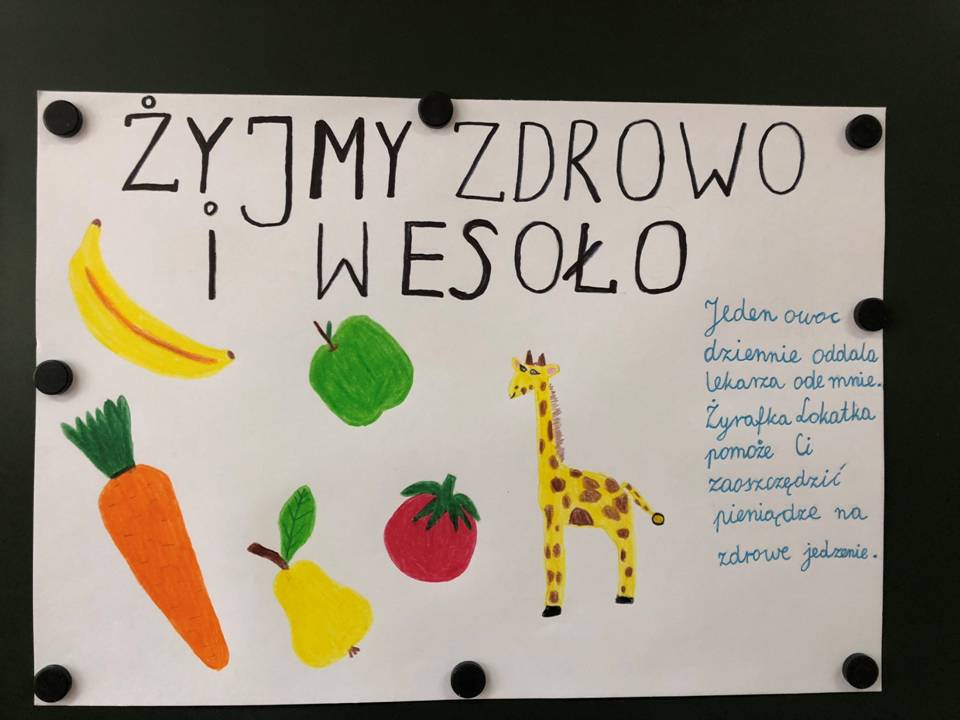 ŻYJMY ZDROWO
i WESOŁO
Jeden owoc
dziennie oddala
lekarza ode mnie.
Żyrafka Lokatka
pomoże Ci
zaoszczędzić
pieniądze na
zdrowe jedzenie.